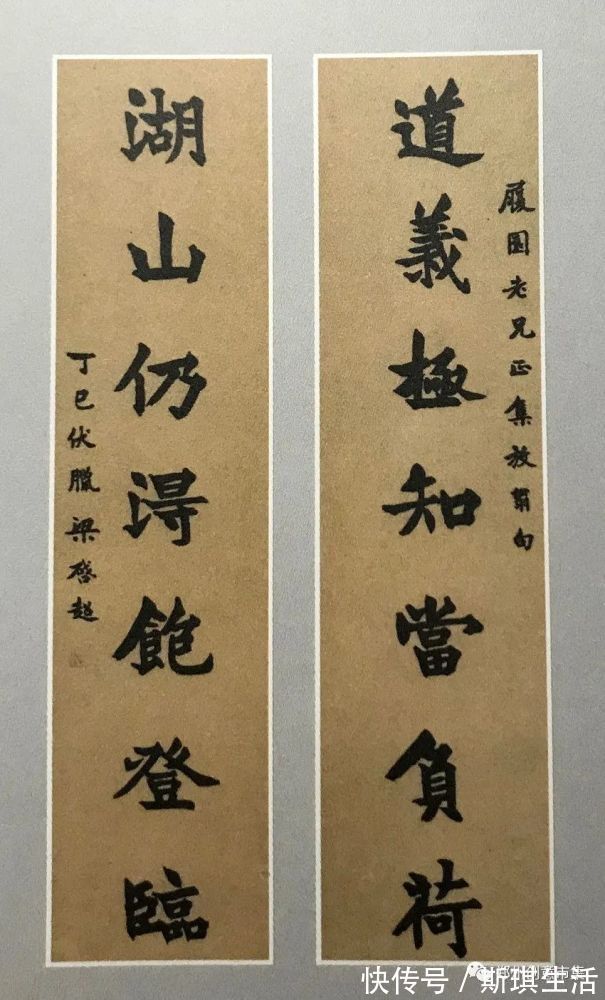 道義極知當負荷
履園老兄正集放翁句
湖山仍得飽登臨
丁巳伏臘梁啓超
快传号／斯琪生活